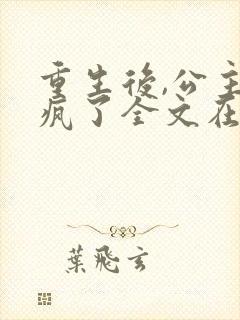 重生後,公主
瘋了全文在
葉飛玄